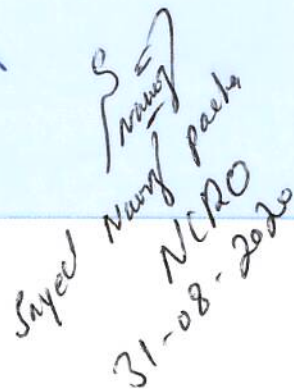 Sayed Nawaz pasha
NCRO
31-08-2020